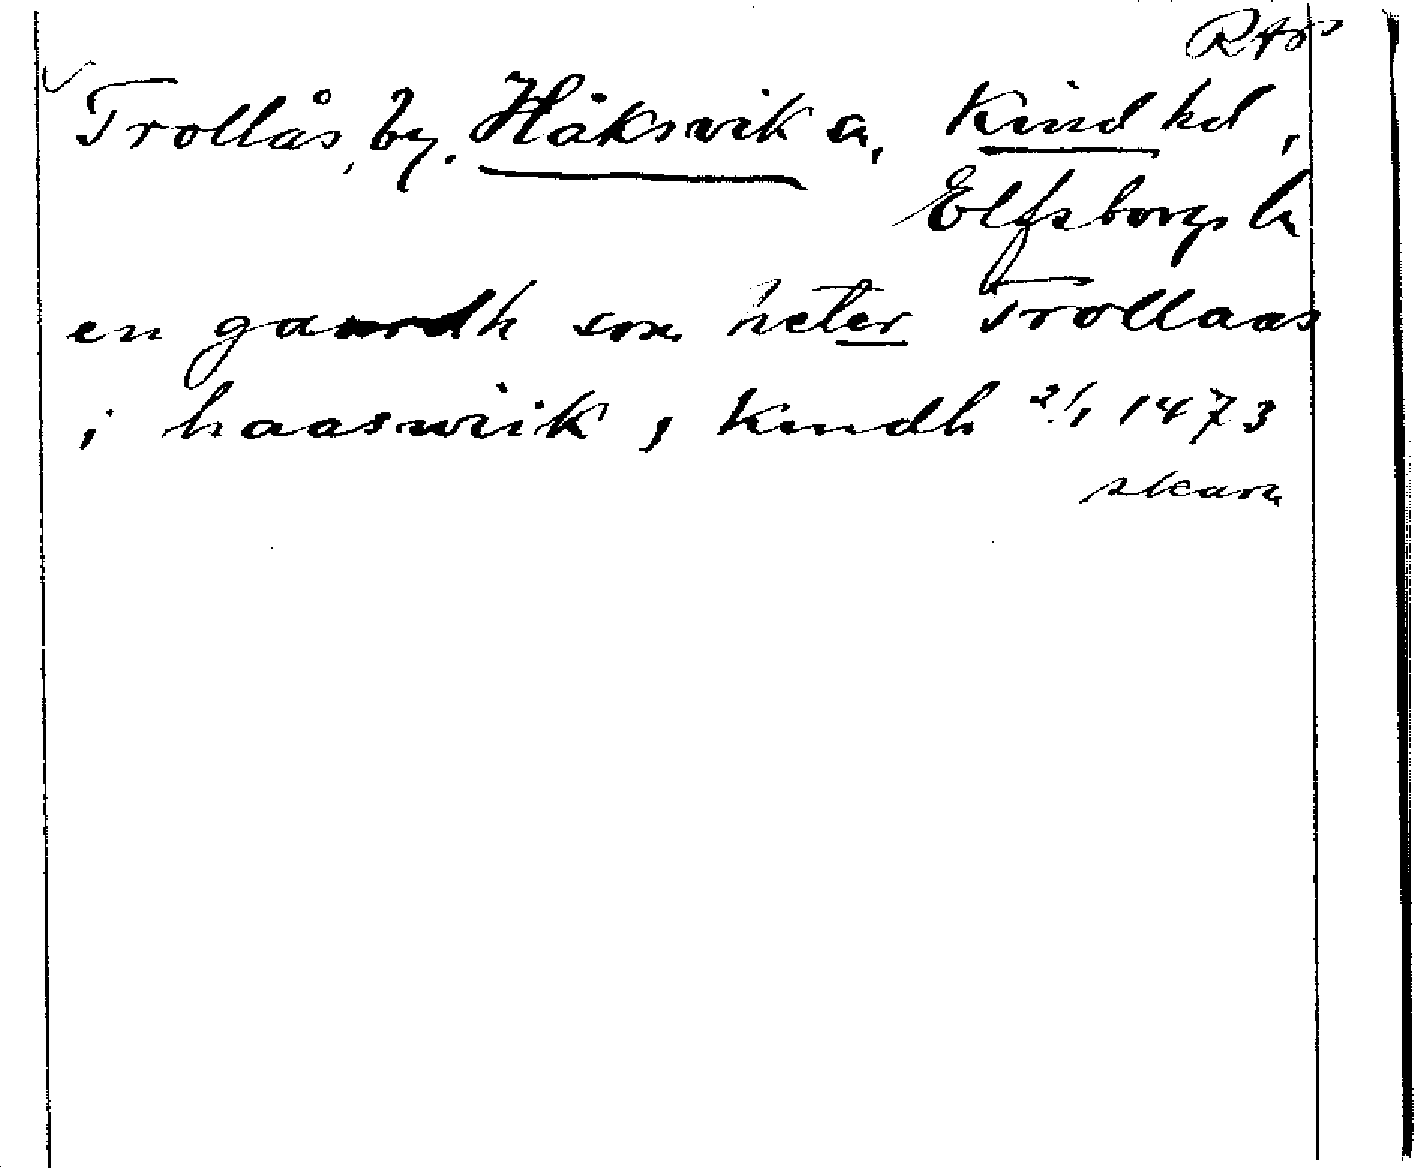 RAp
Trollås, by. Håksvik sn, Kind hd,
Elfsborgs län
en gaardh som heter Trollaas
i haaswiik, Kindh 2/1 1473
skara